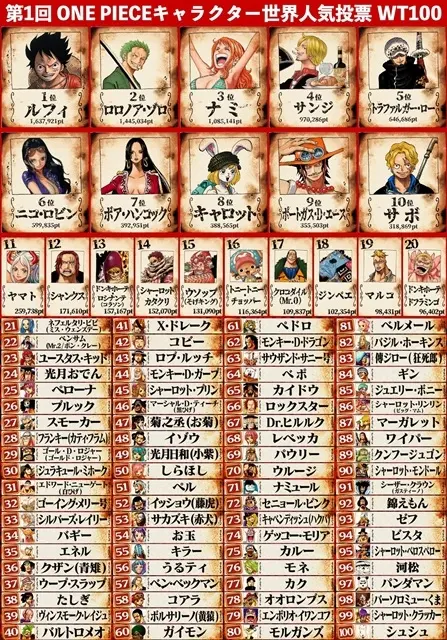 第1回 ONE PIECEキャラクター世界人気投票 WT100
1位
ルフィ
1,637,921pt
2位
ロロノア・ゾロ
1,445,034pt
3位
ナミ
1,085,141pt
4位
サンジ
970,286pt
5位
トラファルガー・ロー
646,686pt
6位
ニコ・ロビン
599,835pt
7位
ボア・ハンコック
392,951pt
8位
キャロット
388,565pt
9位
ポートガス・D・エース
355,503pt
10位
サボ
318,869pt
11
ヤマト
259,738pt
12
シャンクス
171,610pt
13
ドンキホーテ
ロシナンテ
(コラソン)
157,167pt
14
シャーロット
カタクリ
152,070pt
15
ウソップ
(そげキング)
131,090pt
16
トニートニー
チョッパー
116,364pt
17
クロコダイル
(Mr.0)
109,837pt
18
ジンベエ
102,354pt
19
マルコ
98,431pt
20
ドンキホーテ
ドフラミンゴ
96,402pt
21 ネフェルタリ・ビビ
(ミス・ウェンズデー)
22 ベンサム
(Mr.2/ボン・クレー)
23 ユースタス・キッド
24 光月おでん
25 ペローナ
26 ブルック
27 スモーカー
28 フランキー(カティ・フラム)
29 ゴール・D・ロジャー
(ゴールド・ロジャー)
30 ジュラキュール・ミホーク
31 エドワード・ニューゲート
(白ひげ)
32 ゴーイングメリー号
33 シルバーズ・レイリー
34 バギー
35 エネル
36 クザン(青雉)
37 ウープ・スラップ
38 たしぎ
39 ヴィンスモーク・レイジュ
40 バルトロメオ
41 X・ドレーク
42 コビー
43 ロブ・ルッチ
44 モンキー・D・ガープ
45 シャーロット・プリン
46 マーシャル・D・ティーチ
(黒ひげ)
47 菊之丞(お菊)
48 イゾウ
49 光月日和(小紫)
50 しらほし
51 ペル
52 イッショウ(藤虎)
53 サカズキ(赤犬)
54 お玉
55 キラー
56 うるティ
57 ベン・ベックマン
58 コアラ
59 ボルサリーノ(黄猿)
60 ガイモン
61 ペドロ
62 モンキー・D・ドラゴン
63 サウザンド・サニー号
64 ベポ
65 カイドウ
66 ロックスター
67 Dr.ヒルルク
68 レベッカ
69 パウリー
70 ウルージ
71 ナミュール
72 セニョール・ピンク
73 キャベンディッシュ(ハクバ)
74 ゲッコー・モリア
75 カルー
76 モネ
77 カク
78 オオロンブス
79 エンポリオ・イワンコフ
80 モルガンズ
81 ベルメール
82 バジル・ホーキンス
83 傳ジロー(狂死郎)
84 ギン
85 ジュエリー・ボニー
86 シャーロット・リンリン
(ビッグ・マム)
87 マーガレット
88 ワイパー
89 クンフージュゴン
90 シャーロット・モンドール
91 シーザー・クラウン
92 錦えもん
93 ゼフ
94 ビスタ
95 シャーロット・ペロスペロー
96 河松
97 パンダマン
98 バーソロミュー・くま
99 クラッカー
100 コニュ